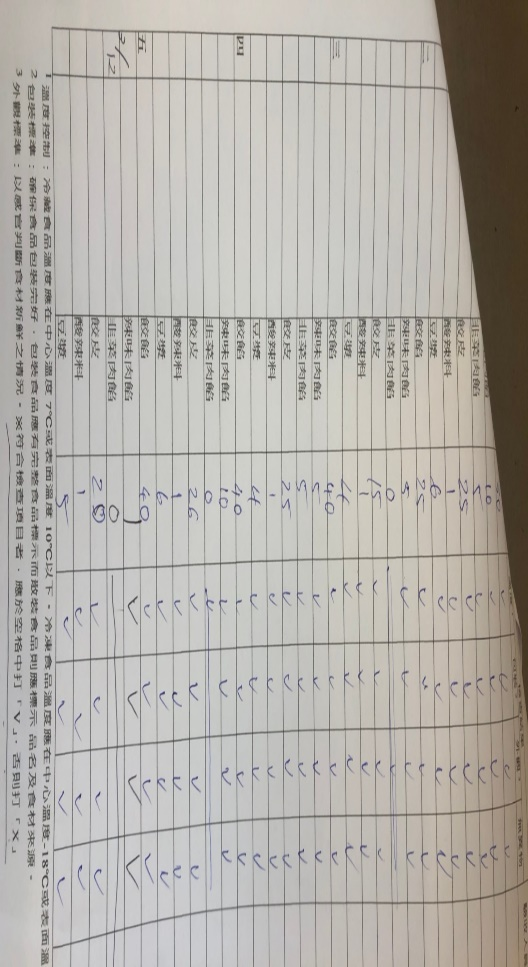 10 V V V V
韭菜肉餡 5 V V V V
餃皮 25 V V V V
酸辣料 1 V V V V
豆漿 6 V V V V
二 餃餡 25 V V V V
辣味肉餡 5 V V V V
韭菜肉餡 0
餃皮 15 V V V V
酸辣料 1 V V V V
豆漿 4 V V V V
三 餃餡 40 V V V V
辣味肉餡 5 V V V V
韭菜肉餡 5 V V V V
餃皮 25 V V V V
酸辣料 1 V V V V
豆漿 4 V V V V
四 餃餡 40 V V V V
辣味肉餡 10 V V V V
韭菜肉餡 0
餃皮 26 V V V V
酸辣料 1 V V V V
豆漿 6 V V V V
五 餃餡 40 V V V V
辣味肉餡 V V V V
2/12 韭菜肉餡 0
餃皮 20 V V V V
酸辣料 1 V V V V
豆漿 5 V V V V
1 溫度控制：冷藏食品溫度應在中心溫度 7℃或表面溫度 10℃以下，冷凍食品溫度應在中心溫度-18℃或表面溫
2 包裝標準：確保食品包裝完好，包裝食品應有完整食品標示而散裝食品則應標示品名及食材來源。
3 外觀標準：以感官判斷食材新鮮之情況，來符合檢查項目者，應於空格中打「V」，否則打「X」